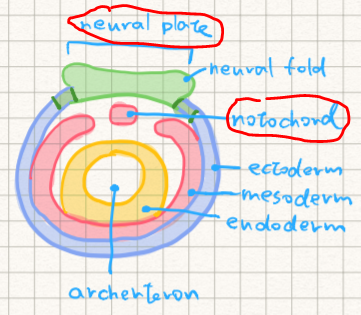 neural plate
neural fold
notochord
ectoderm
mesoderm
endoderm
archenteron